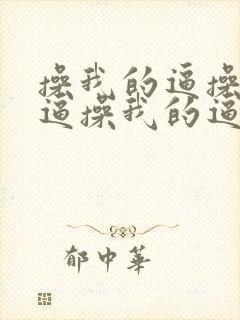 操我的逼操
逼操我的逼
郁中華